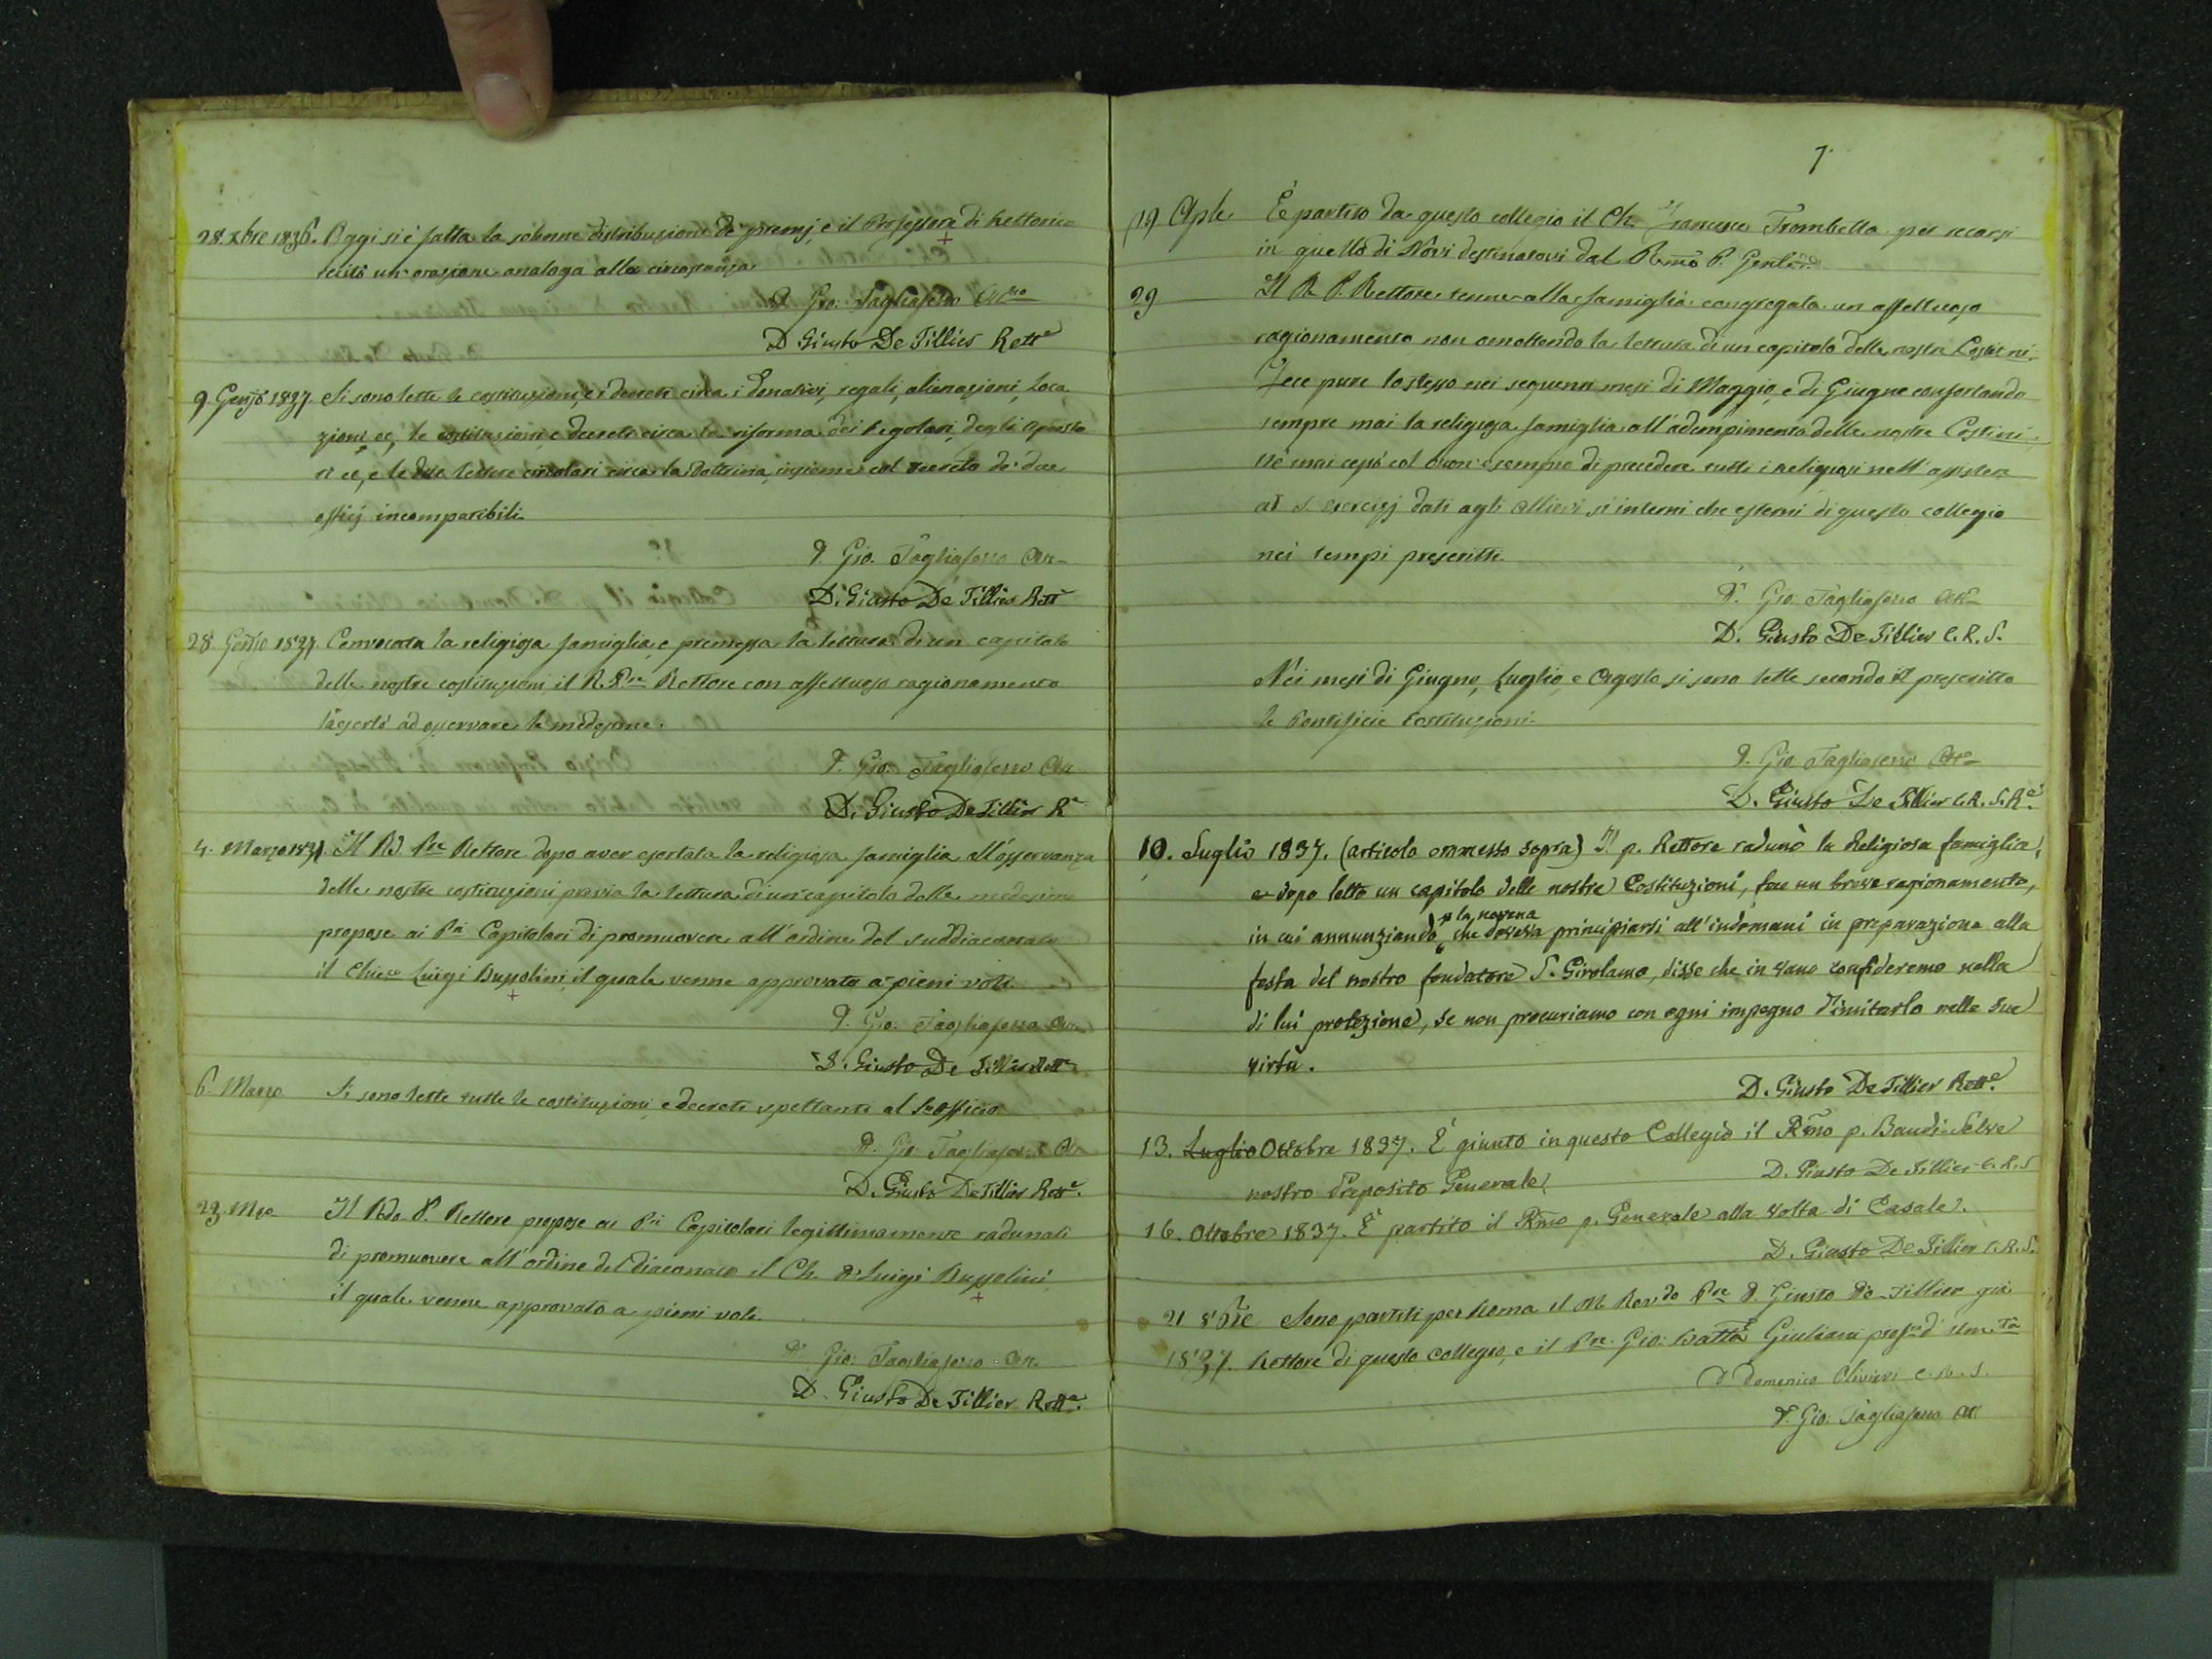 28. Xbre 1836. Oggi si è fatta la solenne distribuzione de' premj, e il Professore di Rettorica
recitò un'orazione analoga alla circostanza.
D. Gio: Tagliaferro Att.rio
D. Giusto De Tillier Rett.e
9 Genjo 1837. Si sono lette le costituzioni, e i decreti circa i Donativi, regali, alienazioni, Loca
zioni, ec, le costituzioni e decreti circa la riforma dei Regolari, degli Aposta
ti ec, e le due lettere circolari circa la Dottrina, insieme col decreto de' due
offizj incompatibili.
P. Gio. Tagliaferro Att.
D. Giusto De Tillier Rett.
28 1837. Convocata la religiosa famiglia, e premessa la lettura di un capitolo
delle nostre costituzioni, il R. P.re Rettore con affettuoso ragionamento
l'esortò ad osservare le medesime.
P. Gio: Tagliaferro Att.
D. Giusto De Tillier R.e
4. Marzo 1837. Il Rd. P.re Rettore dopo aver esortata la religiosa famiglia all'osservanza
delle nostre costituzioni, previa la lettura di un capitolo delle medesime
propose ai P.ri Capitolari di promuovere all'ordine del suddiaconato
il Chier.co Luigi Bussolini, il quale venne approvato a pieni voti.
P. Gio: Tagliaferro Att.
D. Giusto De Tillier Rett.e
6. Marzo. Si sono lette tutte le costituzioni, e decreti spettanti al S. Officio
P. Gio Tagliaferro Att.
D. Giusto De Tillier Rett.e
23. Mzo Il Rdo P. Rettore propose ai P.ri Capitolari legittimamente radunati
di promuovere all'ordine del diaconato il Ch. D. Luigi Bussolini,
il quale venne approvato a pieni voti.
P. Gio: Tagliaferro Att.
D. Giusto De Tillier Rett.e
7.
19 Aple È partito da questo collegio il Ch. Francesco Trombetta per recarsi
in quello di Novi destinatovi dal Rmo P. Genle
29 Il R. P. Rettore tenne alla famiglia congregata un affettuoso
ragionamento non omettendo la lettura di un capitolo delle nostre Costitni.
Fece pure lo stesso nei seguenti mesi di Maggio, e di Giugno confortando
sempre mai la religiosa famiglia all'adempimento delle nostre Costitni.
nè mai cessò col buon esempio di precedere tutti i religiosi nell'assistere
ai S. esercizj dati agli allievi sì interni che esterni di questo collegio
nei tempi prescritti.
P. Gio: Tagliaferro Att.
D. Giusto De Tillier C. R. S.
Nei mesi di Giugno, Luglio, e Agosto si sono lette secondo il prescritto
le Pontificie Costituzioni.
P. Gio Tagliaferro Att.
D. Giusto De Tillier C. R. S. R.e
10. Luglio 1837. (articolo ommesso sopra) Il p. Rettore radunò la Religiosa famiglia,
e dopo letto un capitolo delle nostre Costituzioni, fece un breve ragionamento,
p la novena
in cui annunziando, che doveva principiarsi all'indomani in preparazione alla
festa del nostro fondatore S. Girolamo, disse che in vano confideremo nella
di lui protezione, se non procuriamo con ogni impegno d'imitarlo nelle sue
virtù.
D. Giusto De Tillier Rett.e
13. Luglio Ottobre 1837. È giunto in questo Collegio il Rmo p. Baudi-Selve
D. Giusto De Tillier C. R. S
nostro Preposito Generale.
16. Ottobre 1837. È partito il Rmo p. Generale alla volta di Casale.
D. Giusto De Tillier C. R. S.
21 8bre Sono partiti per Roma il M. Rev.do P.re D. Giusto De-Tillier già
1837. Rettore di questo collegio, e il P.re Gio: Batta Giuliani prof.e d'Um.tà
D. Domenico Olivieri C. R. S.
P. Gio: Tagliaferro Att.